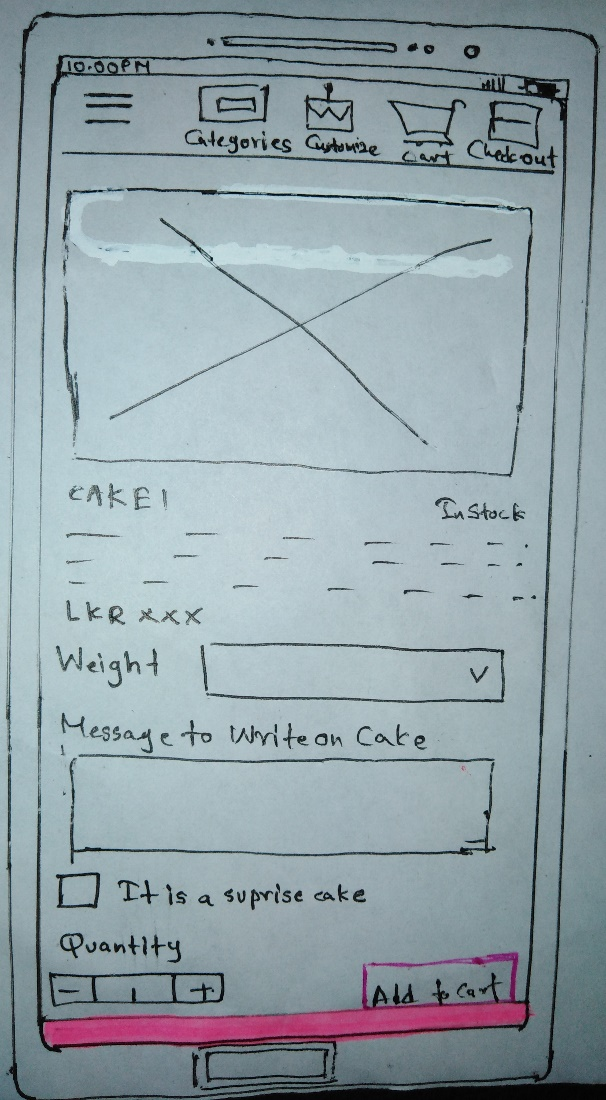 10:00PM
Categories Customize Cart Checkout
CAKE 1
In Stock
LKR xxx
Weight
Message to Write on Cake
It is a suprise cake
Quantity
- 1 +
Add to Cart